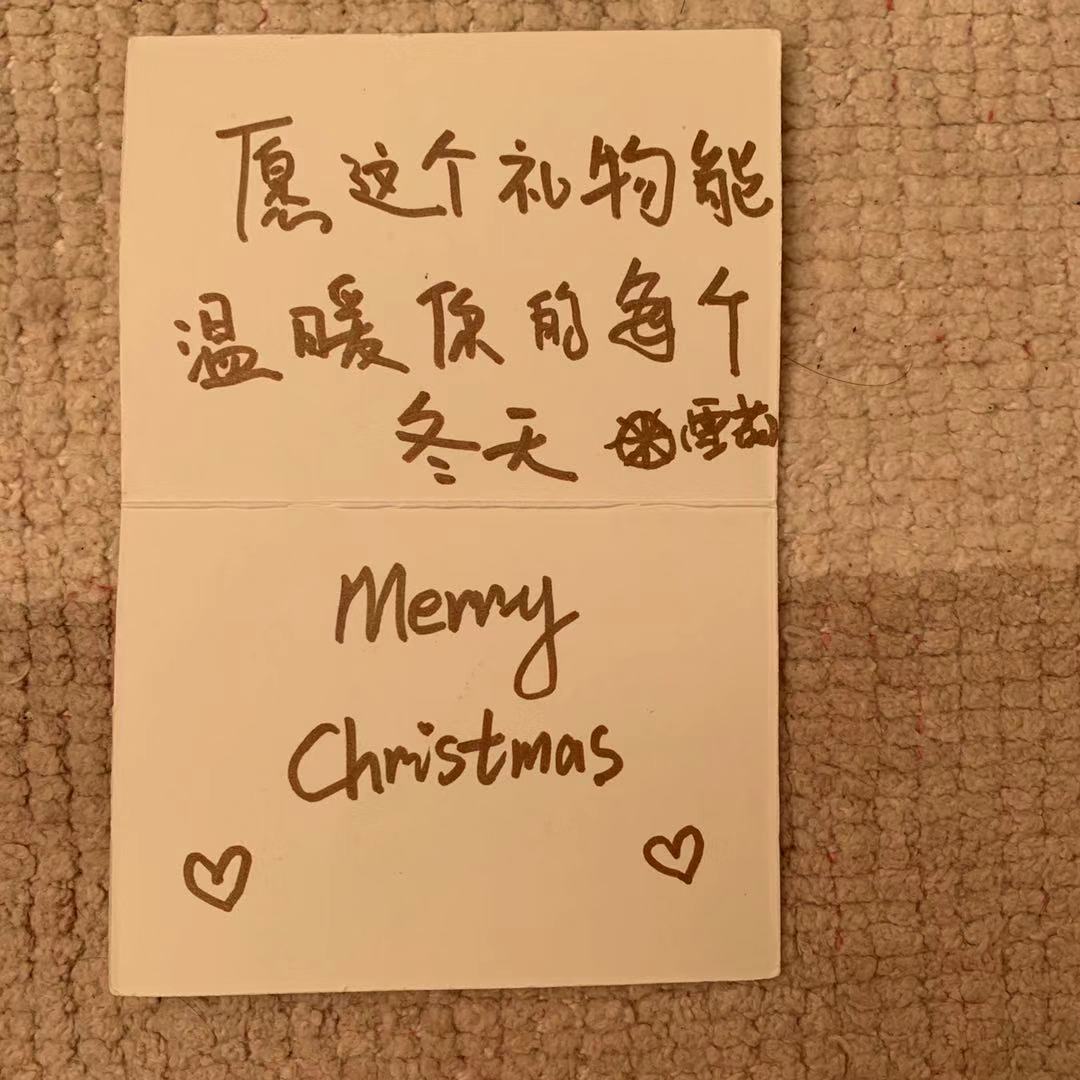 愿这个礼物能
温暖你的每个
冬天 (雪花)
Merry
Christmas